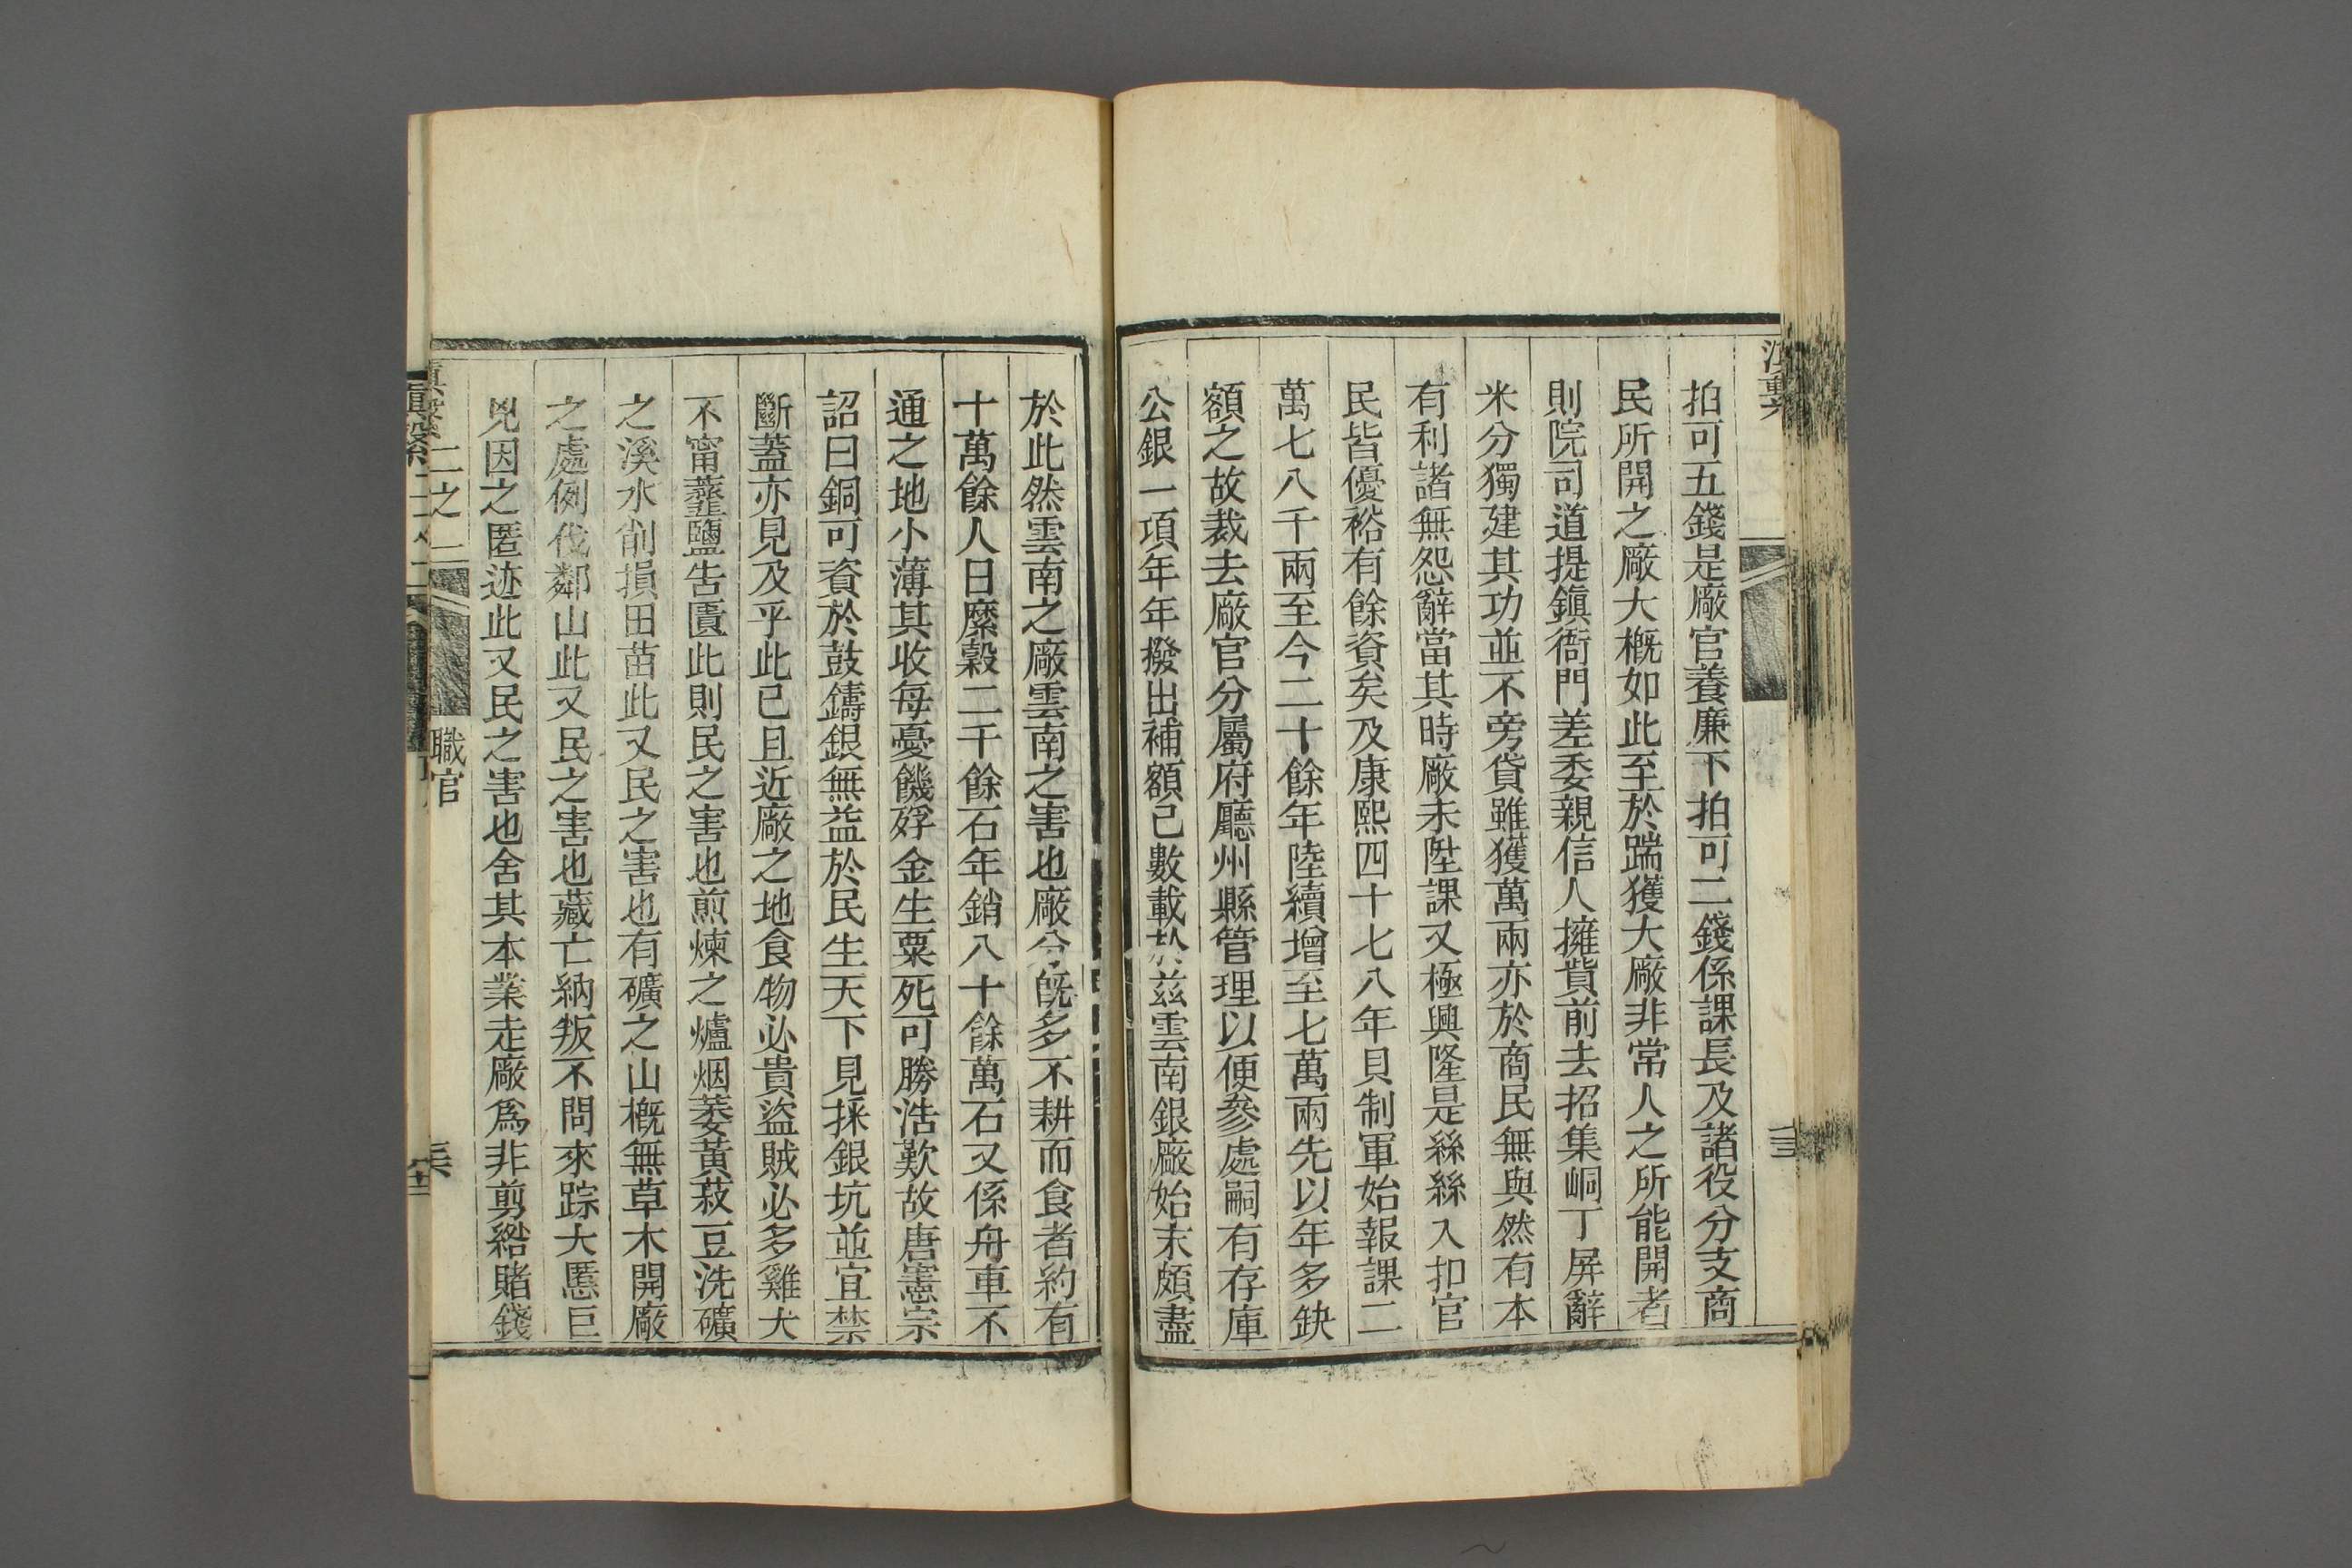 拍可五錢是廠官養廉下拍可二錢係課長及諸役分支商
民所開之廠大概如此至於踹獲大廠非常人之所能開者
則院司道提鎮衙門差委親信人擁貲前去招集峒丁屏辭
米分獨建其功並不旁貸雖獲萬兩亦於商民無與然有本
有利諸無怨辭當其時廠未陞課又極興隆是絲絲入扣官
民皆優裕有餘資矣及康熙四十七八年貝制軍始報課二
萬七八千兩至今二十餘年陸續增至七萬兩先以年多缺
額之故裁去廠官分屬府廳州縣管理以便參處嗣有存庫
公銀一項年年撥出補額已數載於兹雲南銀廠始末頗盡
於此然雲南之廠雲南之害也廠分既多不耕而食者約有
十萬餘人日糜穀二千餘石年銷八十餘萬石又係舟車不
通之地小薄其收每憂饑殍金生粟死可勝浩歎故唐憲宗
詔曰銅可資於鼓鑄銀無益於民生天下見採銀坑並宜禁
斷蓋亦見及乎此已且近廠之地食物必貴盜賊必多雞犬
不甯虀鹽告匱此則民之害也煎煉之爐烟萎黃菽豆洗礦
之溪水削損田苗此又民之害也有礦之山概無草木開廠
之處例伐鄰山此又民之害也藏亡納叛不問來踪大慝巨
兇因之匿迹此又民之害也舍其本業走廠爲非剪綹賭錢
滇繫 二之二 職官